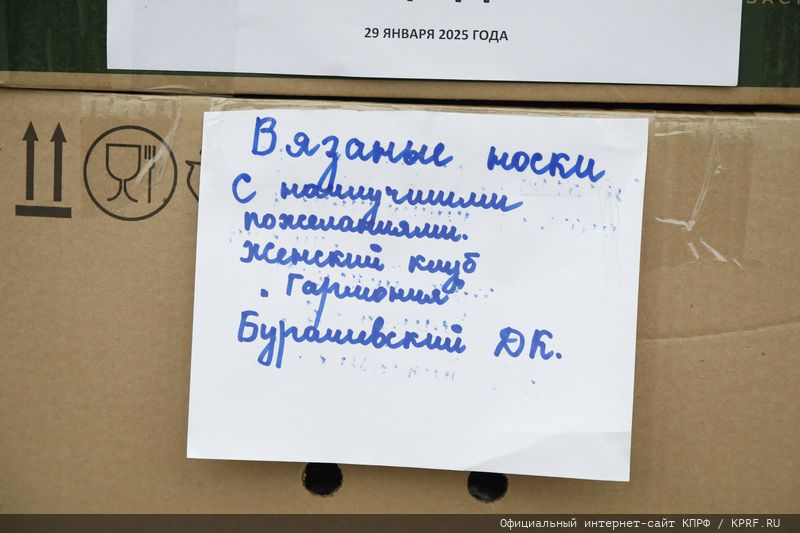 29 ЯНВАРЯ 2025 ГОДА
Вязаные носки
с наилучшими
пожеланиями.
женский клуб
"Гармония"
Бурашевский ДК.
Официальный интернет-сайт КПРФ / KPRF.RU